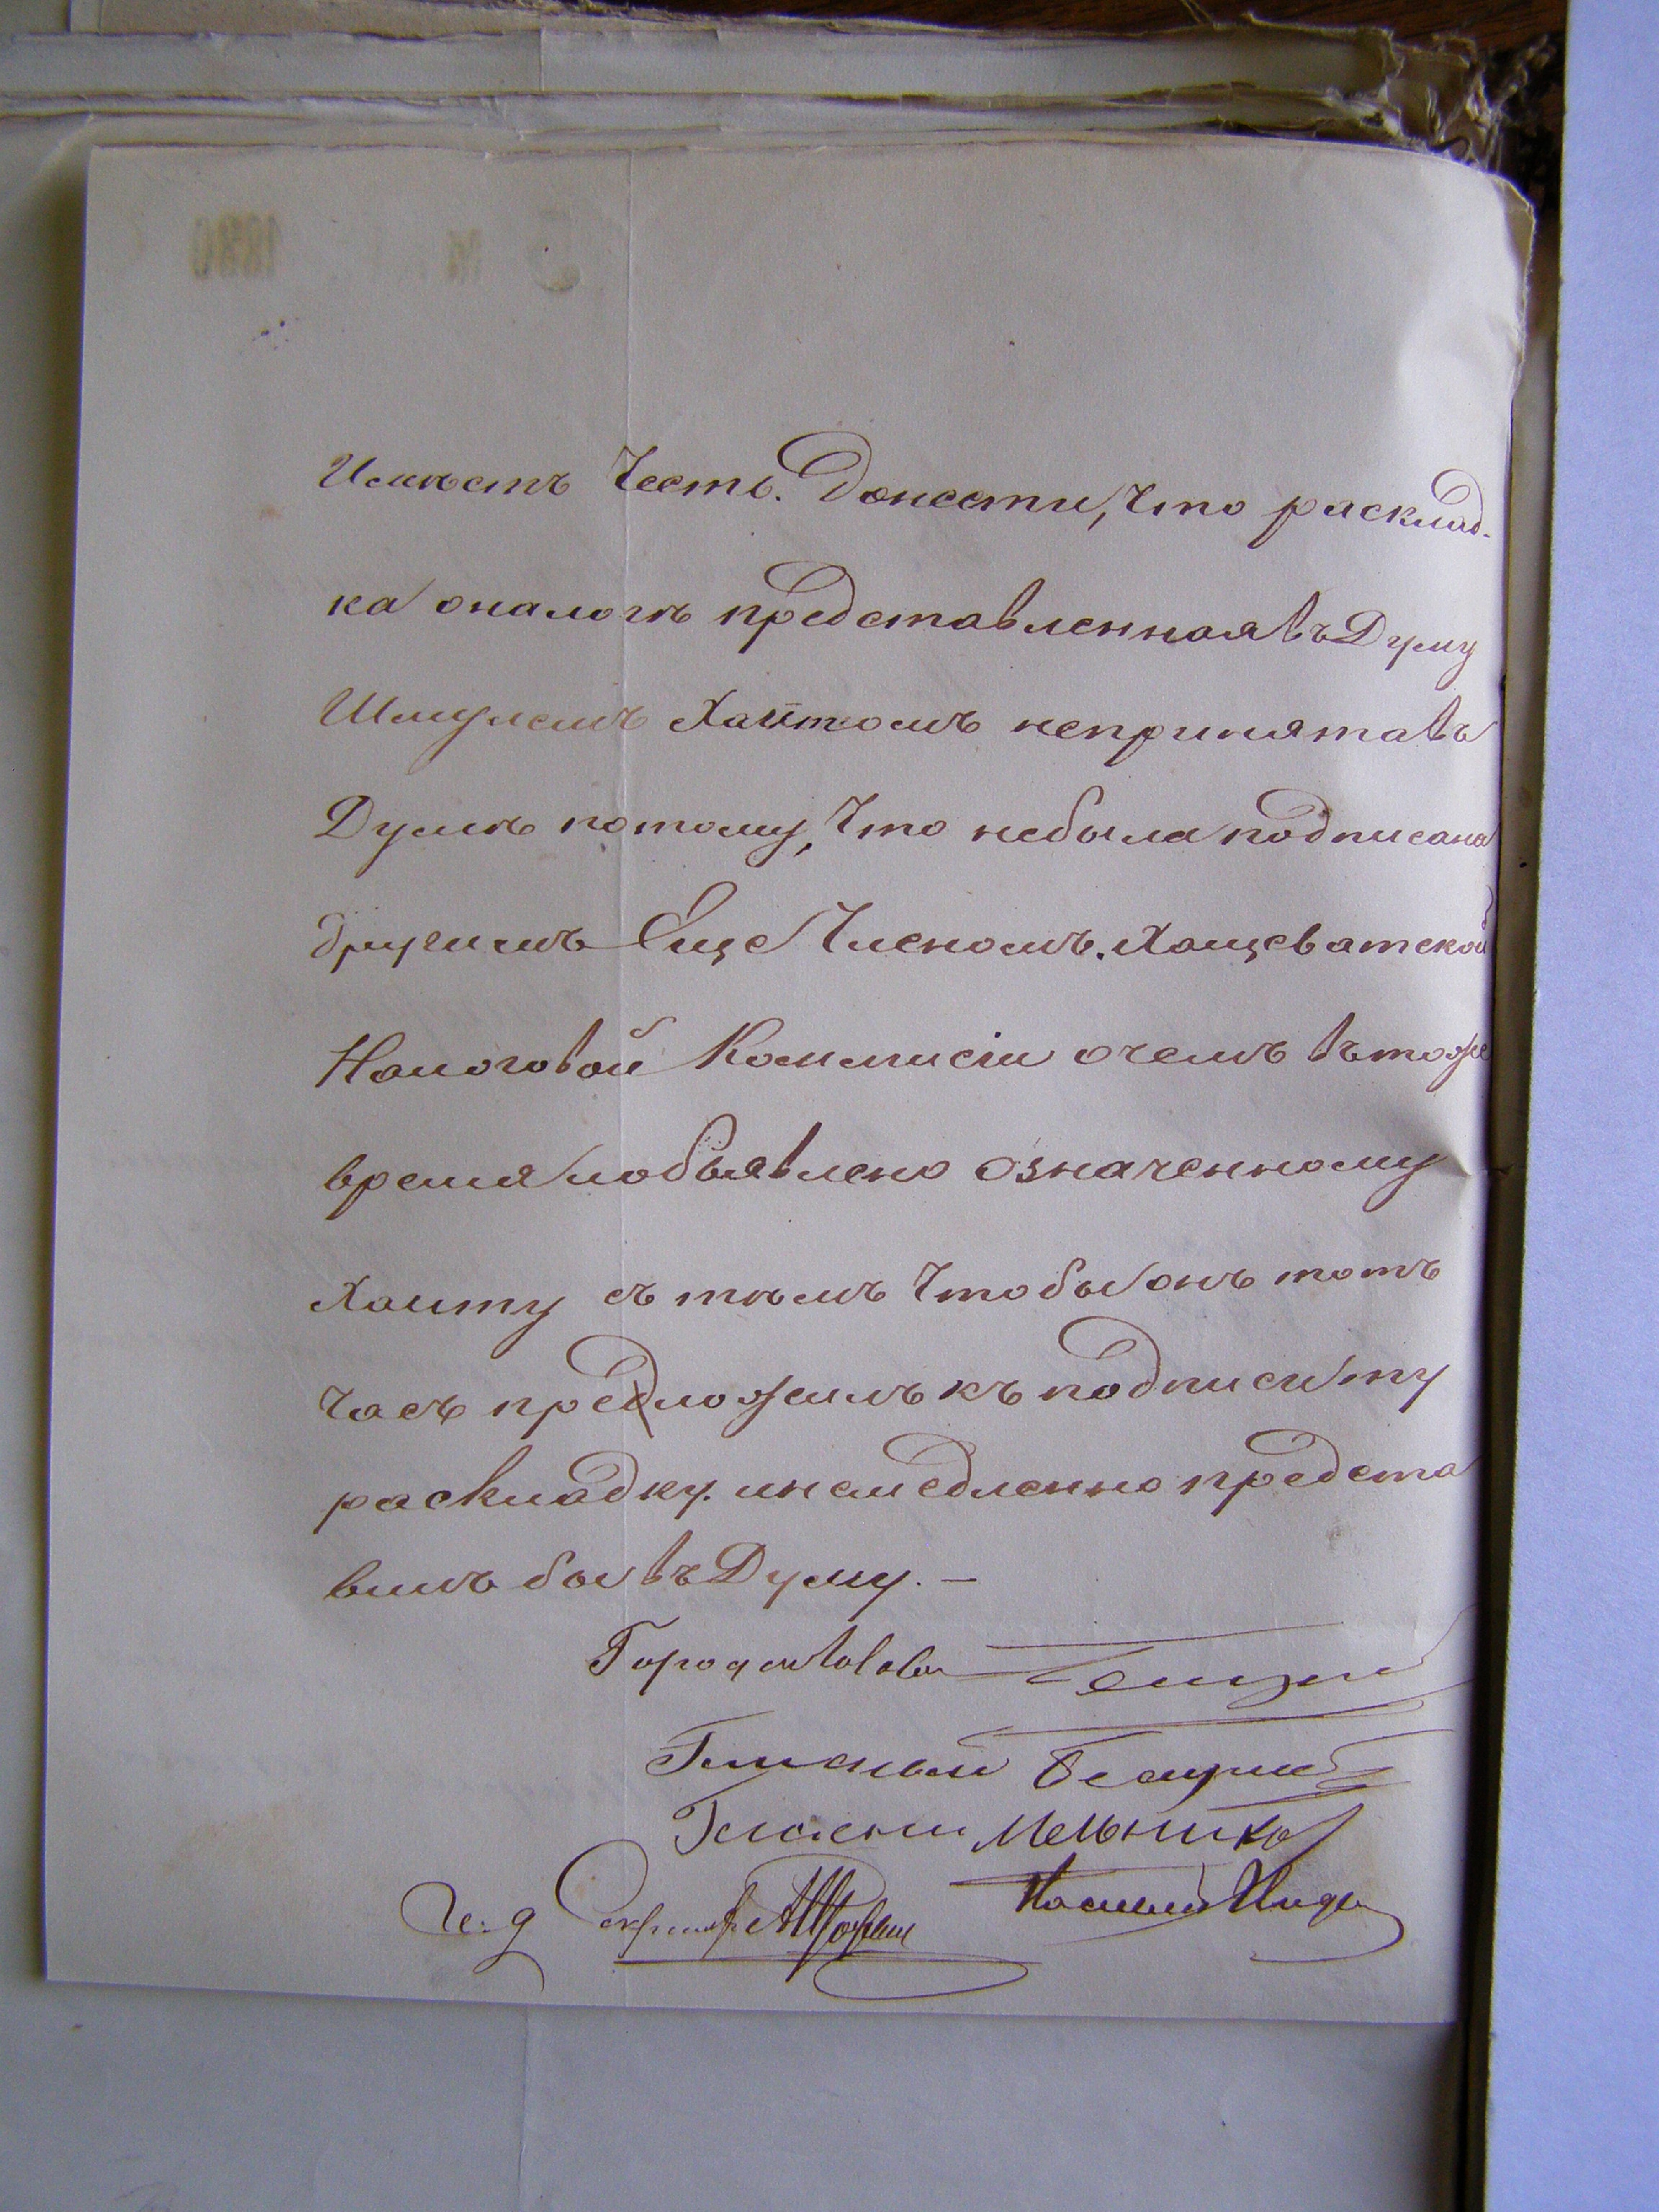 Имѣетъ Честь. Донести, Что расклад-
ка оналогѣ представленная въ Думу
Шмулемъ Хаитомъ непринята въ
Думѣ потому, Что небыла подписана
другимъ Еще Членомъ. Хащеватской
Налоговой Коммисіи очемъ въ тоже
время и объявлено означенному
Хаиту съ тѣмъ Чтобы онъ тотъ
Часъ предложилъ къ подписи ту
раскладку. и немедленно предста
вилъ бы въ Думу. –
Город
Гласный
Гласный Мельников
И. д Секретаря